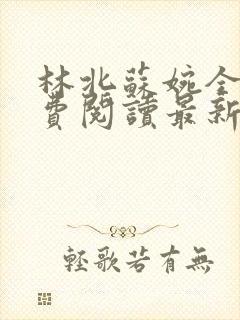 林北蘇婉全
費閱讀最新
輕歌若有無